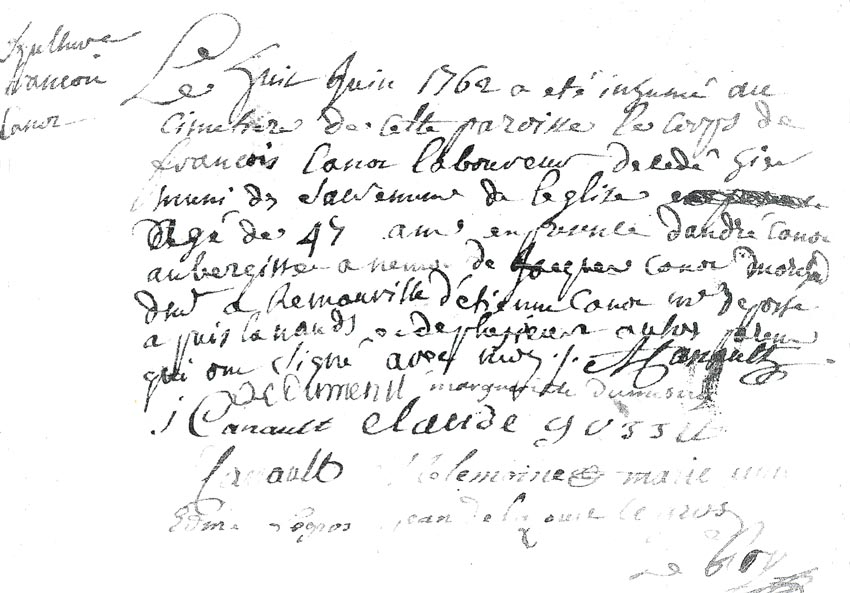 Sepulture
francois
Canot
Le huit Juin 1762 a eté inhumé au
cimetiere de cette paroisse le corps de
francois Canot laboureur decedé hier
muni des sacremens de leglise
Agé de 47 ans en presence dandré Canot
aubergiste a nemo de Jacques Canot march
dmt a Remauville d'étienne Canot me de poste
a puis la et de plusieurs autres
qui ont signé avec moy ./. A Canault
marguerite
J Canault claude
Canault lemoine marie
Edme Legros jean de la le gros
Le Roy